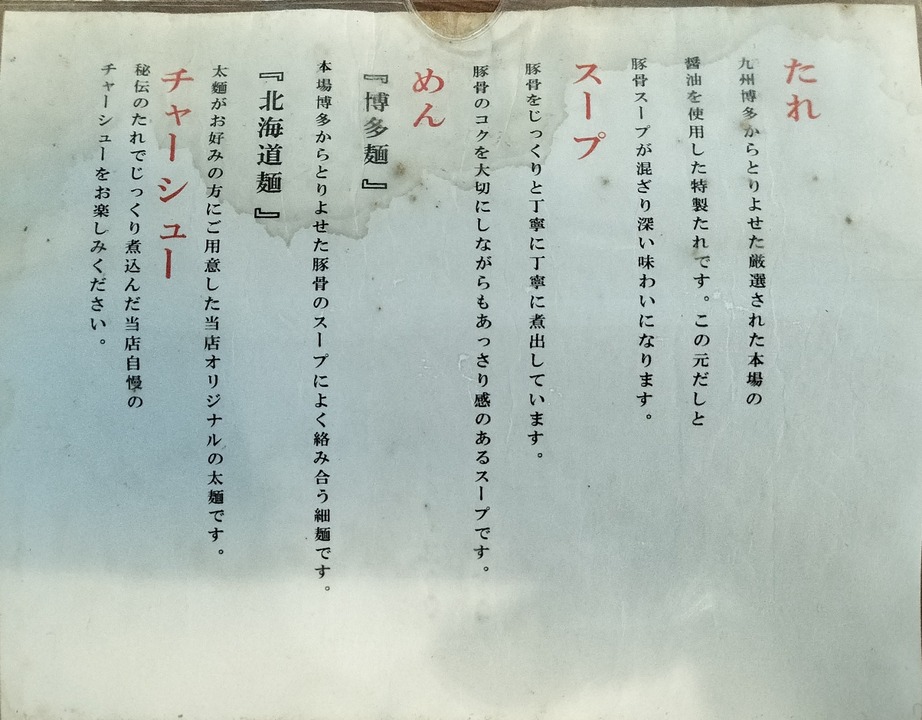 たれ
九州博多からとりよせた厳選された本場の
醤油を使用した特製たれです。この元だしと
豚骨スープが混ざり深い味わいになります。
スープ
豚骨をじっくりと丁寧に丁寧に煮出しています。
豚骨のコクを大切にしながらもあっさり感のあるスープです。
めん
『博多麺』
本場博多からとりよせた豚骨のスープによく絡み合う細麺です。
『北海道麺』
太麺がお好みの方にご用意した当店オリジナルの太麺です。
チャーシュー
秘伝のたれでじっくり煮込んだ当店自慢の
チャーシューをお楽しみください。